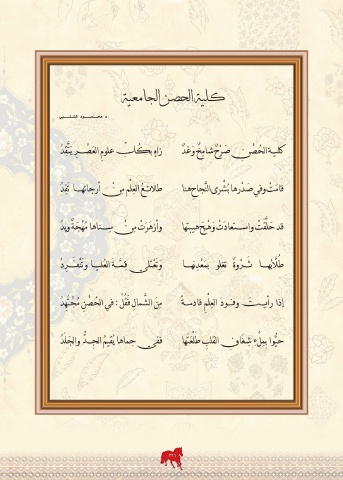 كلية الحصن الجامعية
د. محمود الشلبي
كليـة الحُصْن صَرْحٌ شامِخٌ وَغَدٌ زاهٍ بكتّاب علومِ العَصْـرِ يتَّقِدُ
قامَتْ وفي صَدْرِها بُشْرى النَّجاحِ هنا طلائعُ العِلْمِ من أرجائها تَفِدُ
قد حلَّقَتْ واسـتعادَتْ وَهْـجَ هيبتِها وأزهَرَتْ من سـناها مُهْجَةٌ ويدُ
طُلّابُهـا ثَـرْوَةٌ تعلو بمَعْدنِهـا وَتَعْتَلي قِمَّـةَ العُليـا وتَنْفَـرِدُ
إذا رأيـتَ وفـودَ العِلْمِ قادمـةً مِنَ الشَّمالِ فَقُلْ: في الحُصْنِ مُجْتَهِدُ
حيُّوا بمِلْءِ شِغافِ القَلْبِ طَلْعَتَها ففي حِماها يُقيمُ الجِـدُّ والجَلَدُ